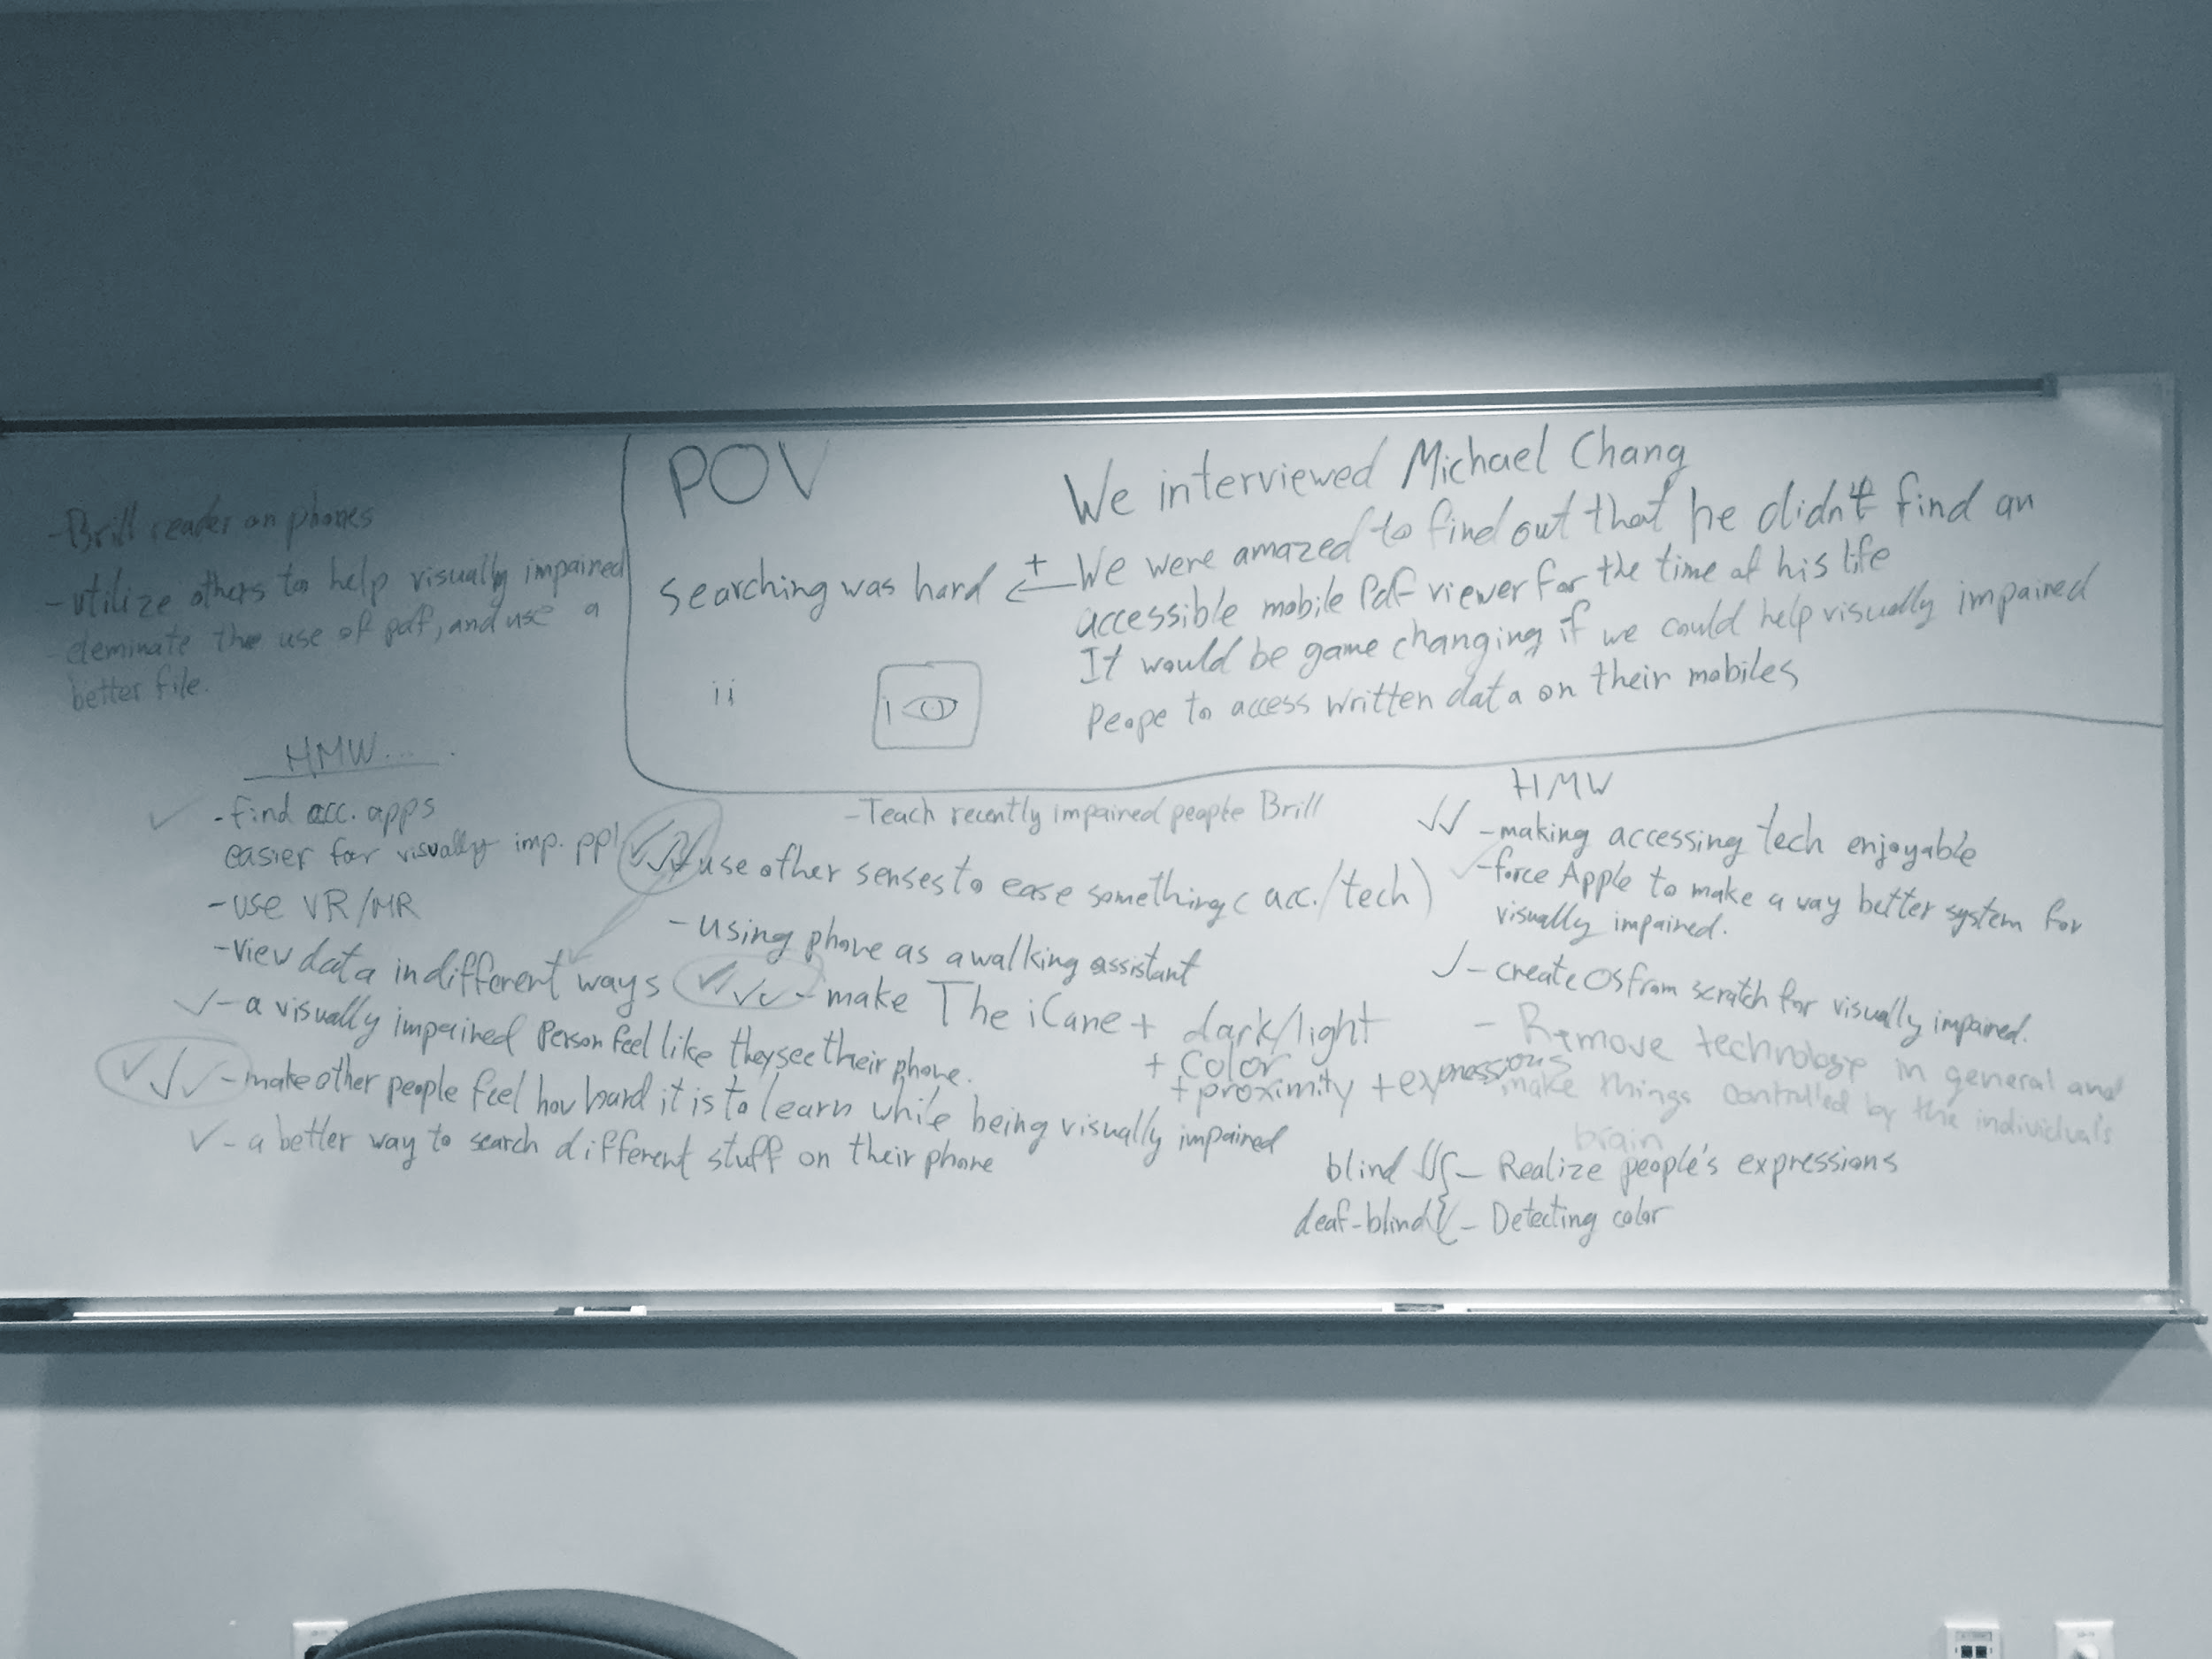 -Brill reader on phones
-utilize others to help visually impaired
- eleminate the use of pdf, and use a
better file.
POV
We interviewed Michael Chang
searching was hard + We were amazed to find out that he didn't find an
accessible mobile Pdf viewer for the time of his life
It would be game changing if we could help visually impaired
Peope to access written data on their mobiles
ii
i
HMW...
-find acc. apps
easier for visually imp. ppl
-use VR/MR
-view data in different ways
✓-a visually impaired Person feel like they see their phone.
✓✓✓-make other people feel how hard it is to learn while being visually impaired
✓-a better way to search different stuff on their phone
-Teach recently impaired people Brill
✓✓✓-use other senses to ease something (acc./tech)
-using phone as a walking assistant
✓✓✓-make The iCane + dark/light
+ color
+ proximity + expressions
HMW
✓✓-making accessing tech enjoyable
✓-force Apple to make a way better system for
visually impaired.
✓-create OS from scratch for visually impaired.
- Remove technology in general and
make things controlled by the individual's
brain
blind ✓✓{- Realize people's expressions
deaf-blind✓{- Detecting color